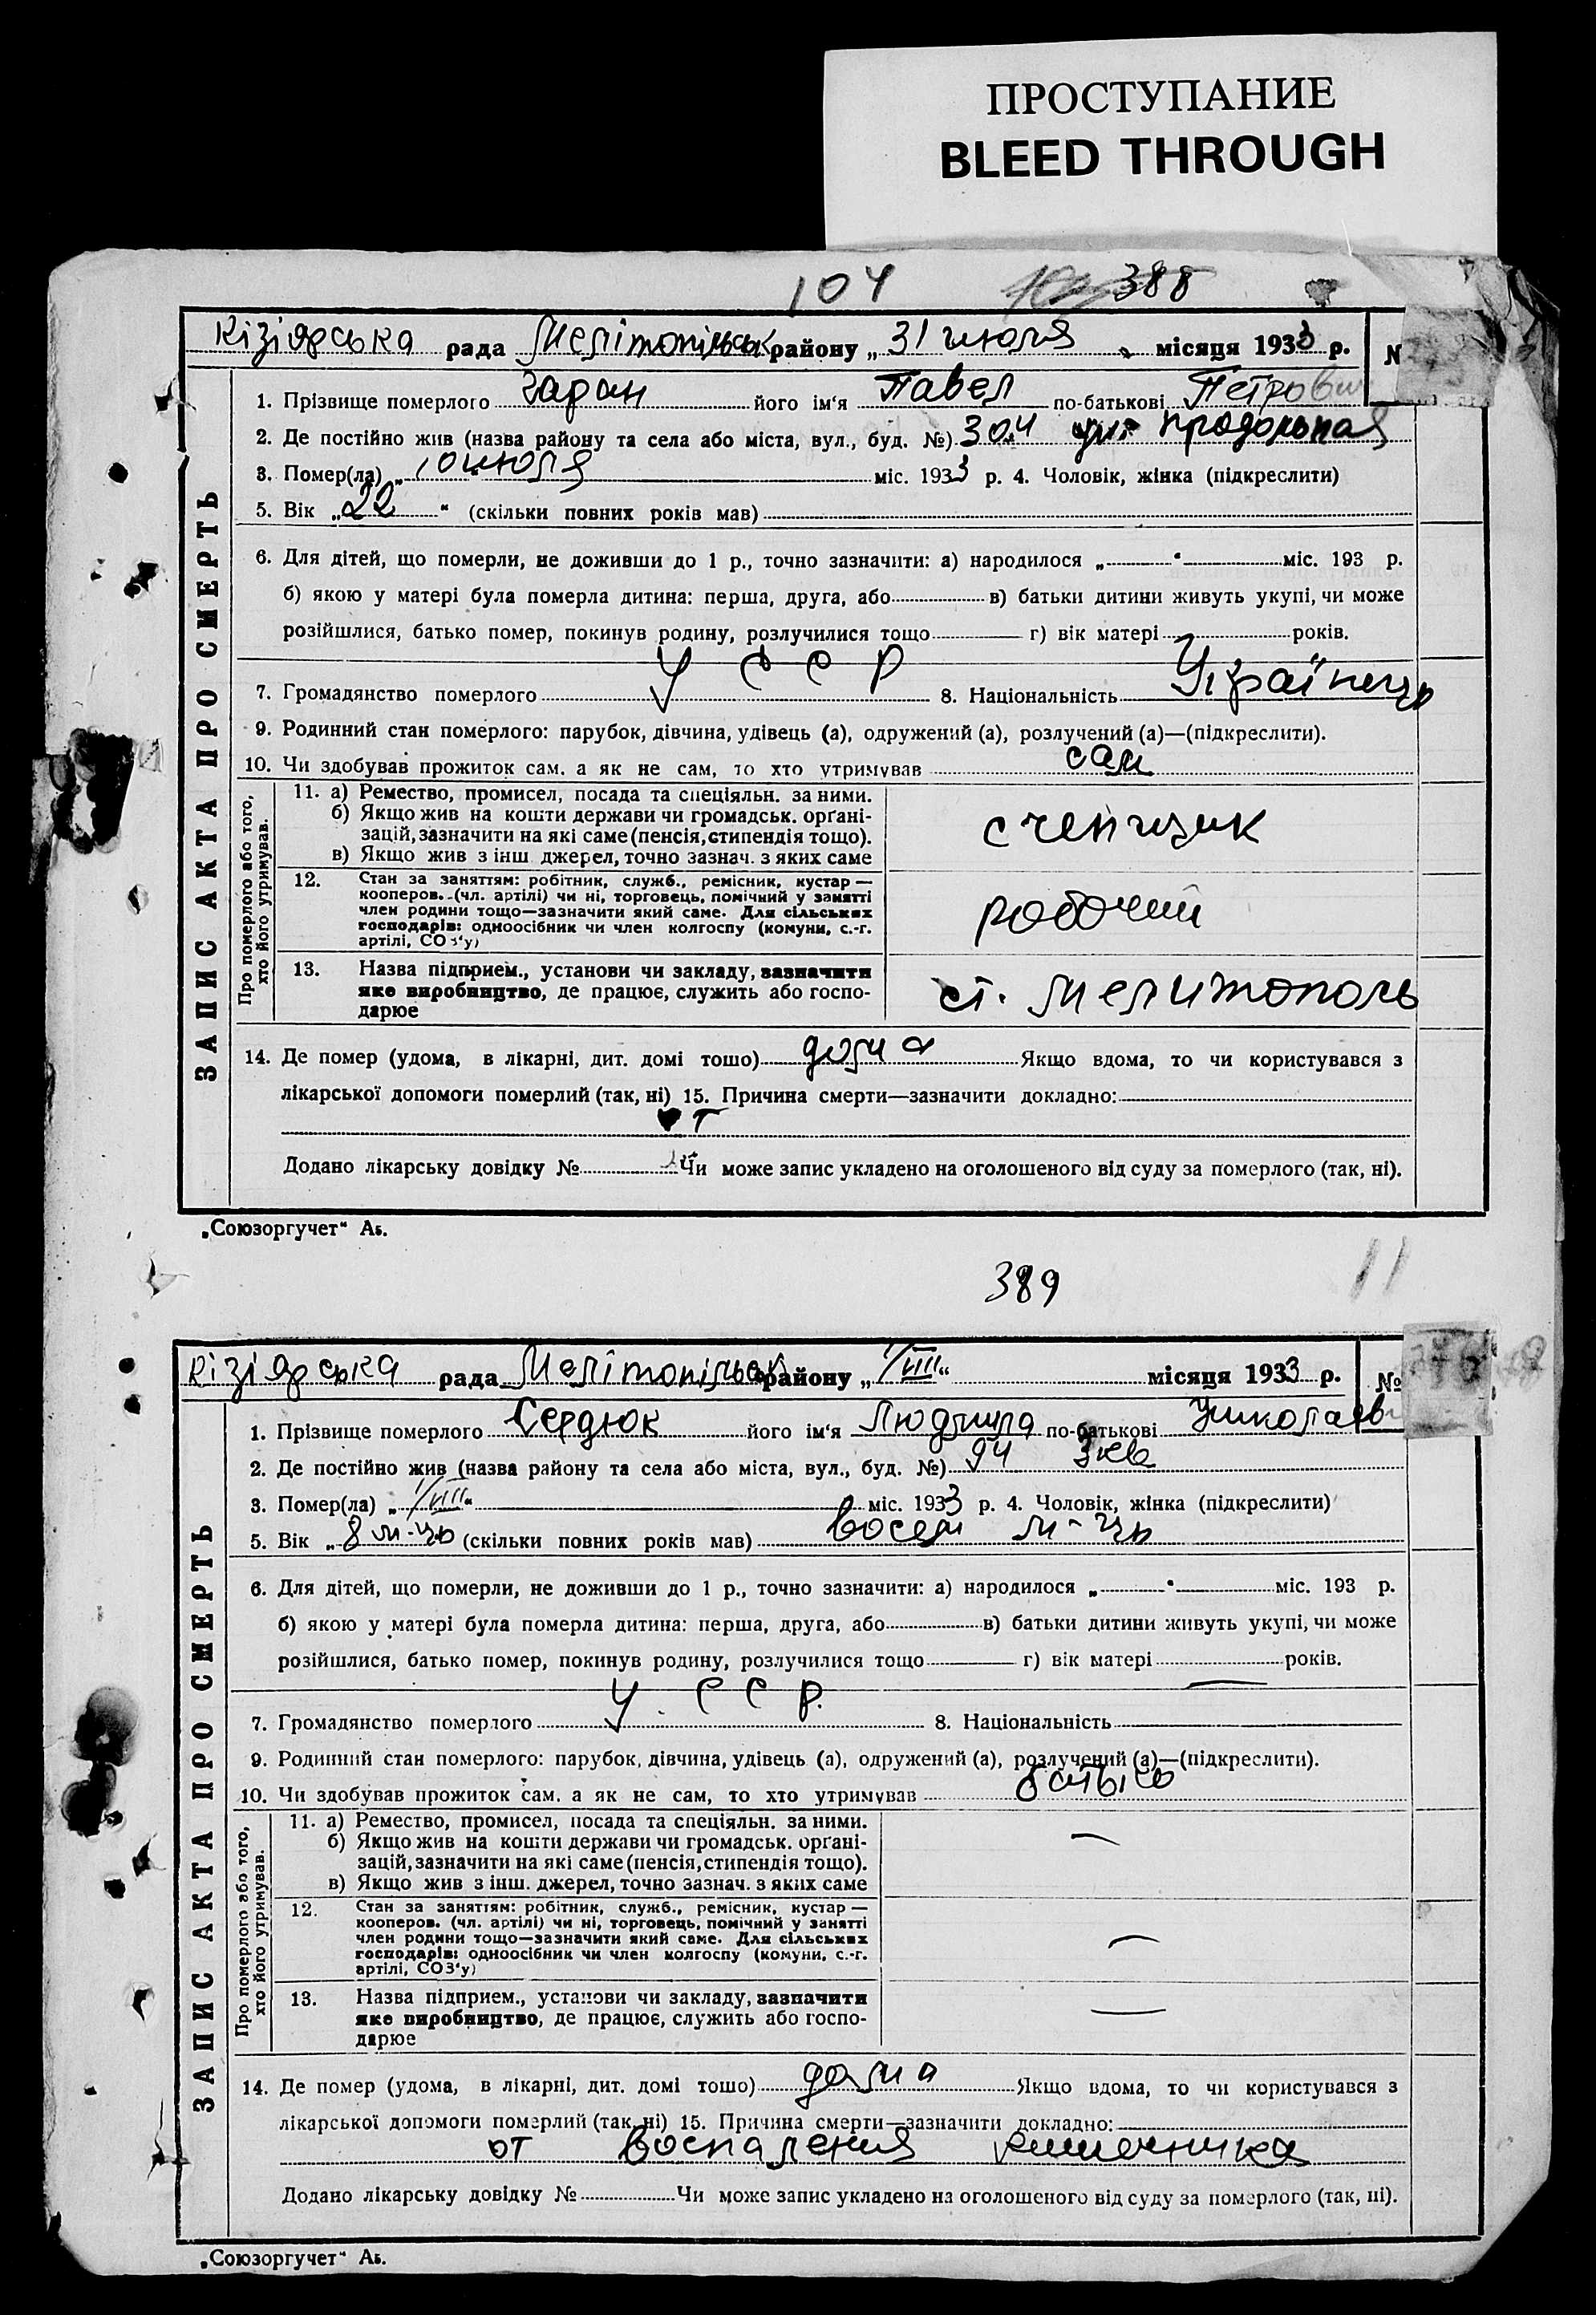 ПРОСТУПАНИЕ
BLEED THROUGH
104 388
Кізіярська рада Мелітопільськ району „ 31 июля місяця 1933 р. №
ЗАПИС АКТА ПРО СМЕРТЬ
1. Прізвище померлого його ім'я Павел по-батькові Петрович
2. Де постійно жив (назва району та села або міста, вул., буд. №) 304 Продольная
3. Помер(ла) „ 10 июля міс. 1933 р. 4. Чоловік, жінка (підкреслити)
5. Вік „ 22 “ (скільки повних років мав)
6. Для дітей, що померли, не доживши до 1 р., точно зазначити: а) народилося „ “ міс. 193 р.
б) якою у матері була померла дитина: перша, друга, або в) батьки дитини живуть укупі, чи може
розійшлися, батько помер, покинув родину, розлучилися тощо г) вік матері років.
7. Громадянство померлого У С С Р 8. Національність Українець
9. Родинний стан померлого: парубок, дівчина, удівець (а), одружений (а), розлучений (а)—(підкреслити).
10. Чи здобував прожиток сам, а як не сам, то хто утримував сам
Про померлого або того, хто його утримував.
11. а) Ремество, промисел, посада та спеціяльн. за ними.
б) Якщо жив на кошти держави чи громадськ. орґані-
зацій, зазначити на які саме (пенсія, стипендія тощо).
в) Якщо жив з інш. джерел, точно зазнач. з яких саме
сченщик
12. Стан за заняттям: робітник, служб., ремісник, кустар —
кооперов. (чл. артілі) чи ні, торговець, помічний у занятті
член родини тощо—зазначити який саме. Для сільських
господарів: одноосібник чи член колгоспу (комуни, с.-г.
артілі, СОЗ'у)
рабочий
13. Назва підприєм., установи чи закладу, зазначити
яке виробництво, де працює, служить або госпо-
дарює
ст. Мелитополь
14. Де помер (удома, в лікарні, дит. домі тошо) дома Якщо вдома, то чи користувався з
лікарської допомоги померлий (так, ні) 15. Причина смерти—зазначити докладно:
от
Додано лікарську довідку № Чи може запис укладено на оголошеного від суду за померлого (так, ні).
„Союзоргучет“ Аь.
389 11
Кізіярська рада Мелітопільськ району „ 1/VIII “ місяця 1933 р. №
ЗАПИС АКТА ПРО СМЕРТЬ
1. Прізвище померлого Сердюк його ім'я Людмила по-батькові
2. Де постійно жив (назва району та села або міста, вул., буд. №) 94
3. Помер(ла) „ 1/VIII “ міс. 1933 р. 4. Чоловік, жінка (підкреслити)
5. Вік „ 8 м-ць (скільки повних років мав) восем м-ць
6. Для дітей, що померли, не доживши до 1 р., точно зазначити: а) народилося „ “ міс. 193 р.
б) якою у матері була померла дитина: перша, друга, або в) батьки дитини живуть укупі, чи може
розійшлися, батько помер, покинув родину, розлучилися тощо г) вік матері років.
7. Громадянство померлого У. С С Р. 8. Національність
9. Родинний стан померлого: парубок, дівчина, удівець (а), одружений (а), розлучений (а)—(підкреслити).
10. Чи здобував прожиток сам, а як не сам, то хто утримував батько
Про померлого або того, хто його утримував.
11. а) Ремество, промисел, посада та спеціяльн. за ними.
б) Якщо жив на кошти держави чи громадськ. орґані-
зацій, зазначити на які саме (пенсія, стипендія тощо).
в) Якщо жив з інш. джерел, точно зазнач. з яких саме
12. Стан за заняттям: робітник, служб., ремісник, кустар —
кооперов. (чл. артілі) чи ні, торговець, помічний у занятті
член родини тощо—зазначити який саме. Для сільських
господарів: одноосібник чи член колгоспу (комуни, с.-г.
артілі, СОЗ'у)
13. Назва підприєм., установи чи закладу, зазначити
яке виробництво, де працює, служить або госпо-
дарює
14. Де помер (удома, в лікарні, дит. домі тошо) дома Якщо вдома, то чи користувався з
лікарської допомоги померлий (так, ні) 15. Причина смерти—зазначити докладно:
от воспаления кишечника
Додано лікарську довідку № Чи може запис укладено на оголошеного від суду за померлого (так, ні).
„Союзоргучет“ Аь.